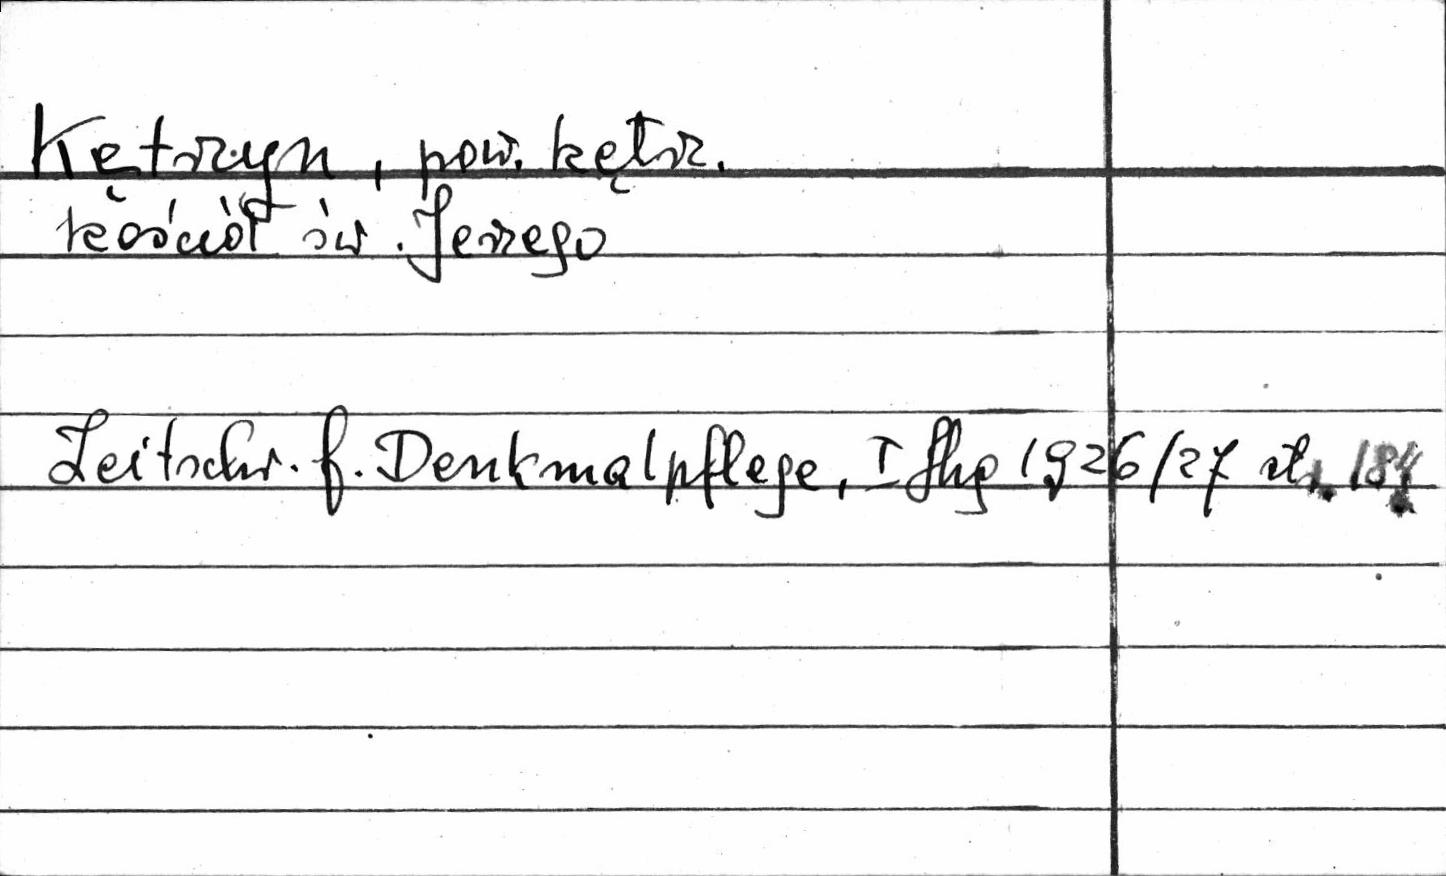 Kętrzyn, pow. kętrz.
kościół św. Jerzego
Zeitschr. f. Denkmalpflege, I Jhg 1926/27 st.